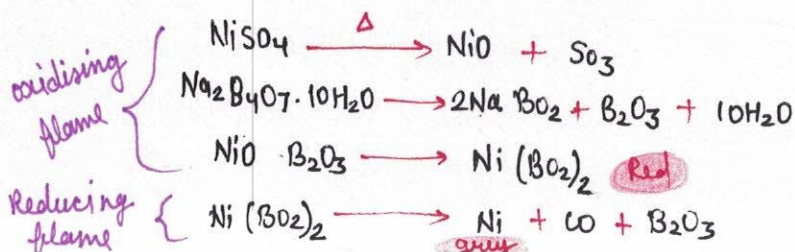 oxidising flame
NiSO4 —Δ→ NiO + SO3
Na2B4O7·10H2O → 2NaBO2 + B2O3 + 10H2O
NiO B2O3 → Ni(BO2)2 Red
Reducing flame
Ni(BO2)2 → Ni + CO + B2O3
grey